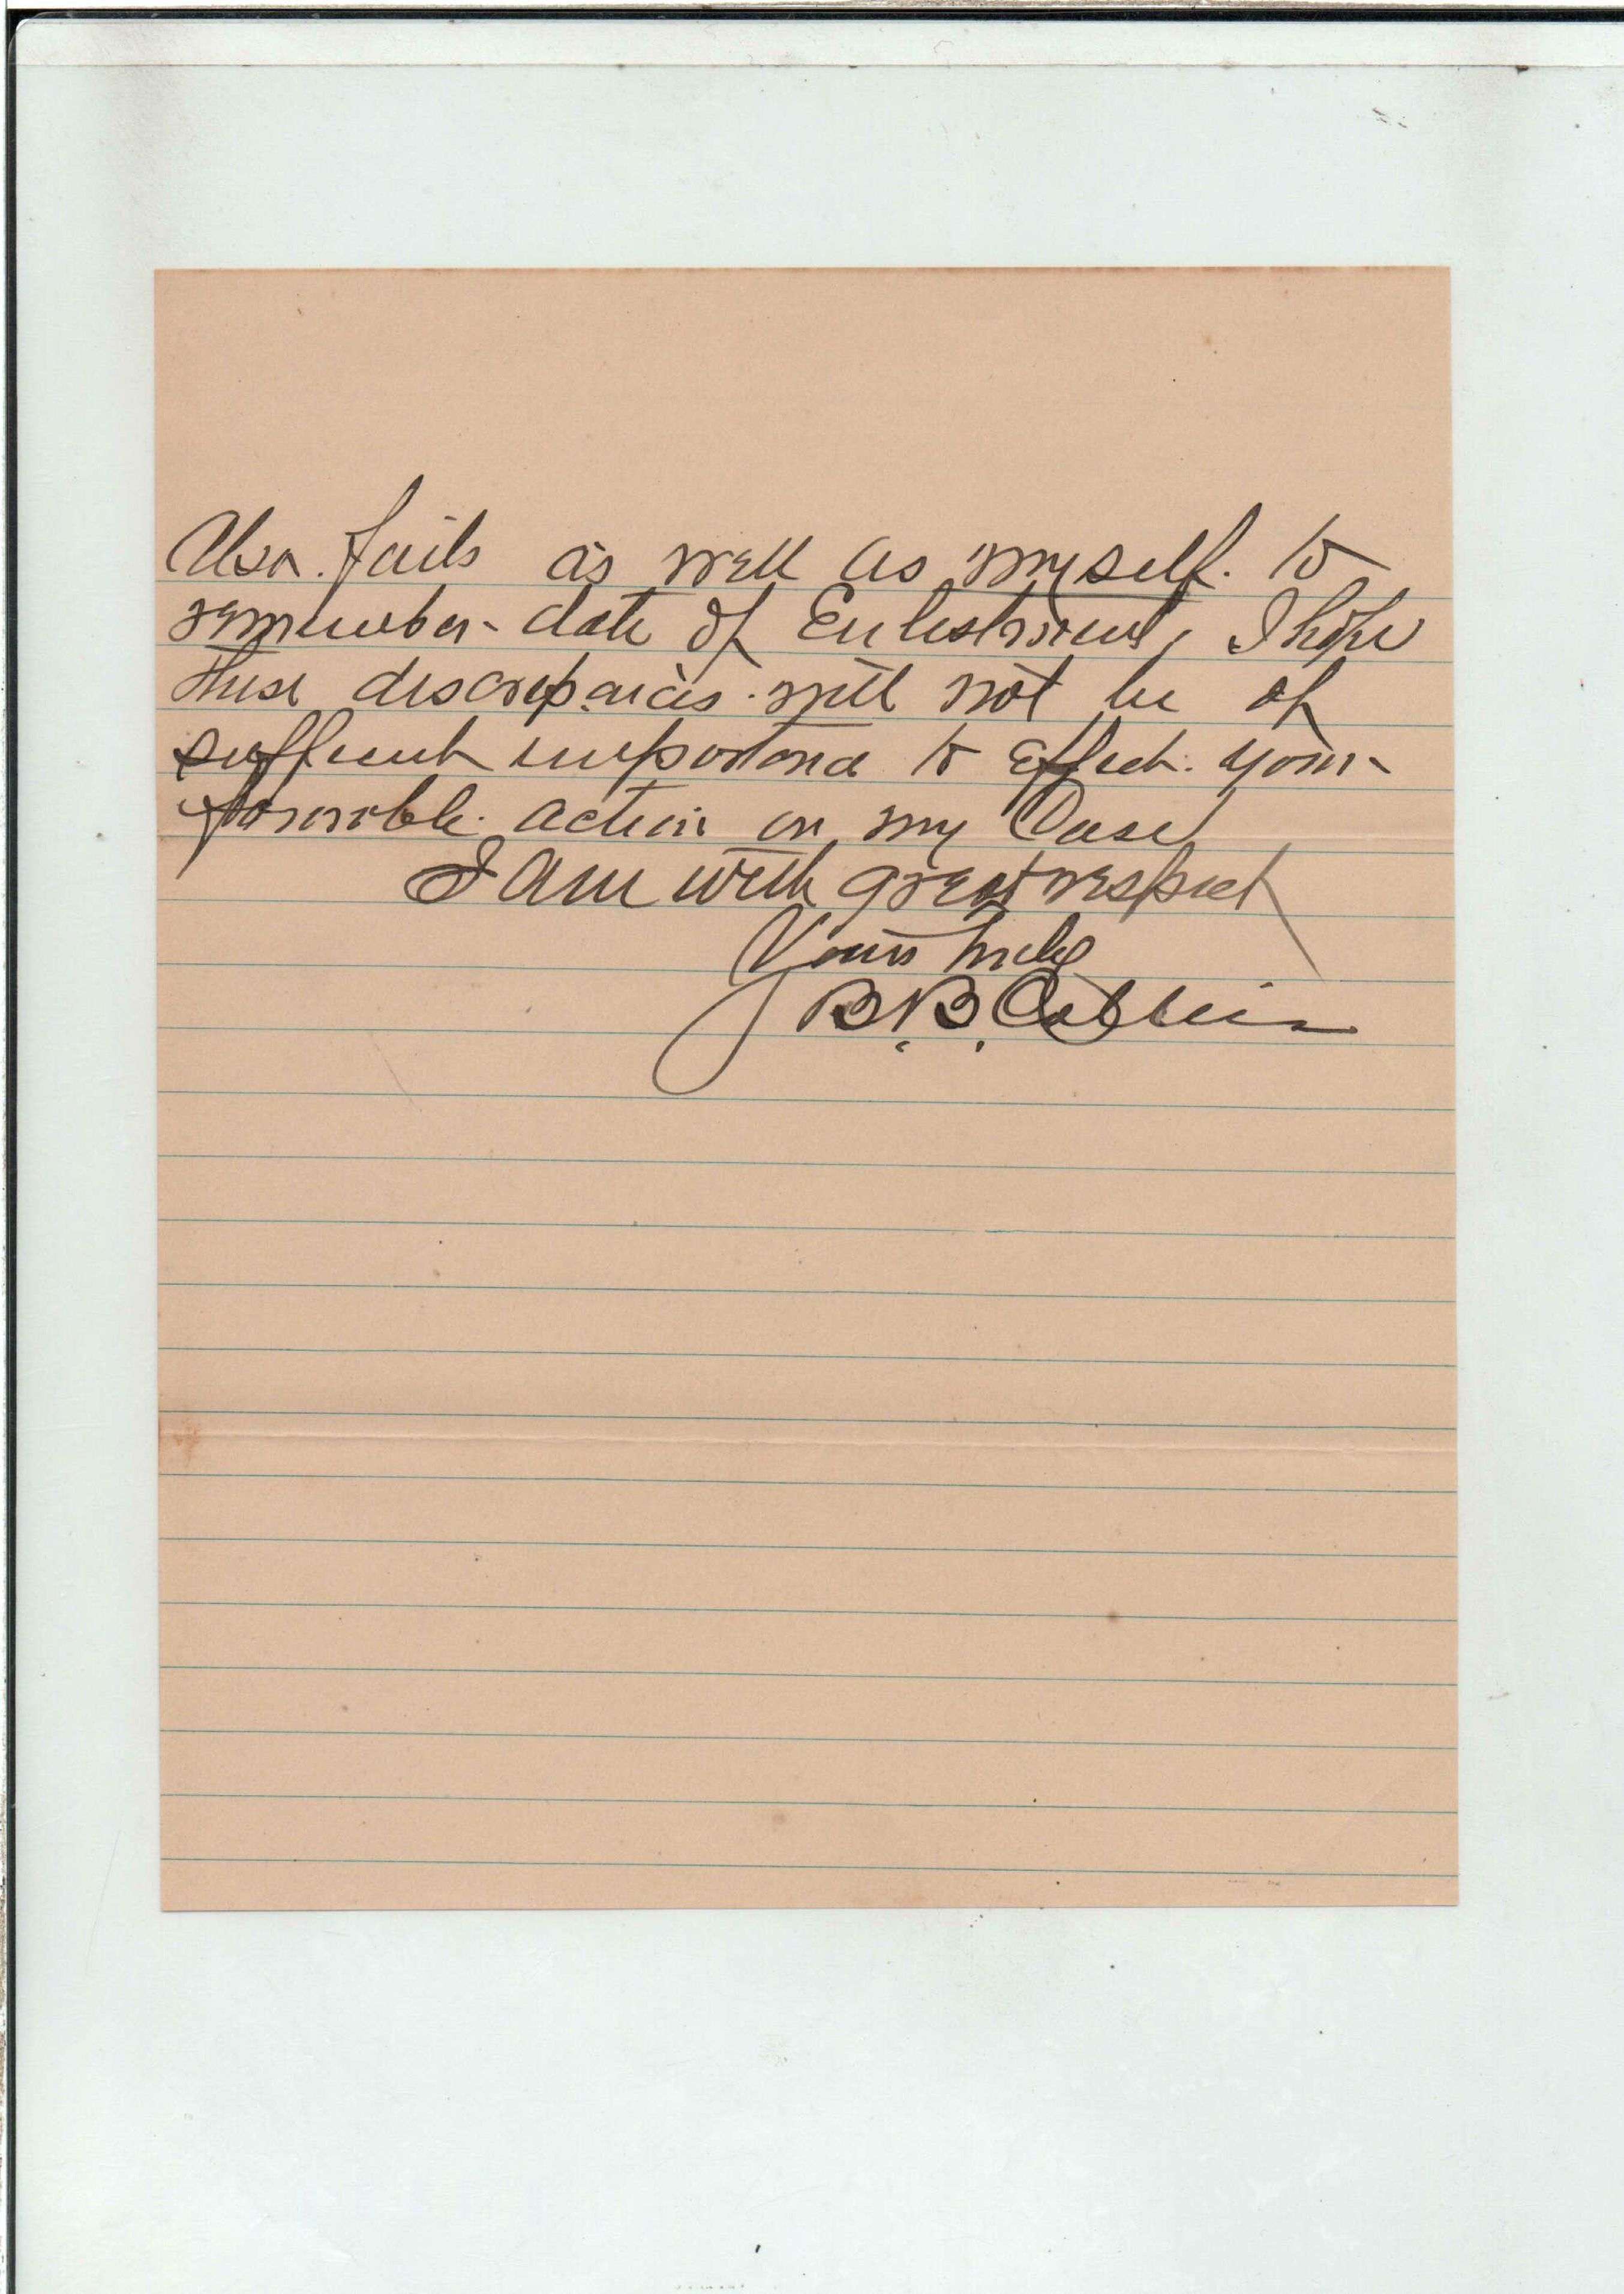 Also. fails as well as myself. to
remember - date of Enlistment, I hope
these discrepancies will not be of
sufficient importance to effect. your
favorable. action on my Case
I am with great respect
Yours truly
B. B.